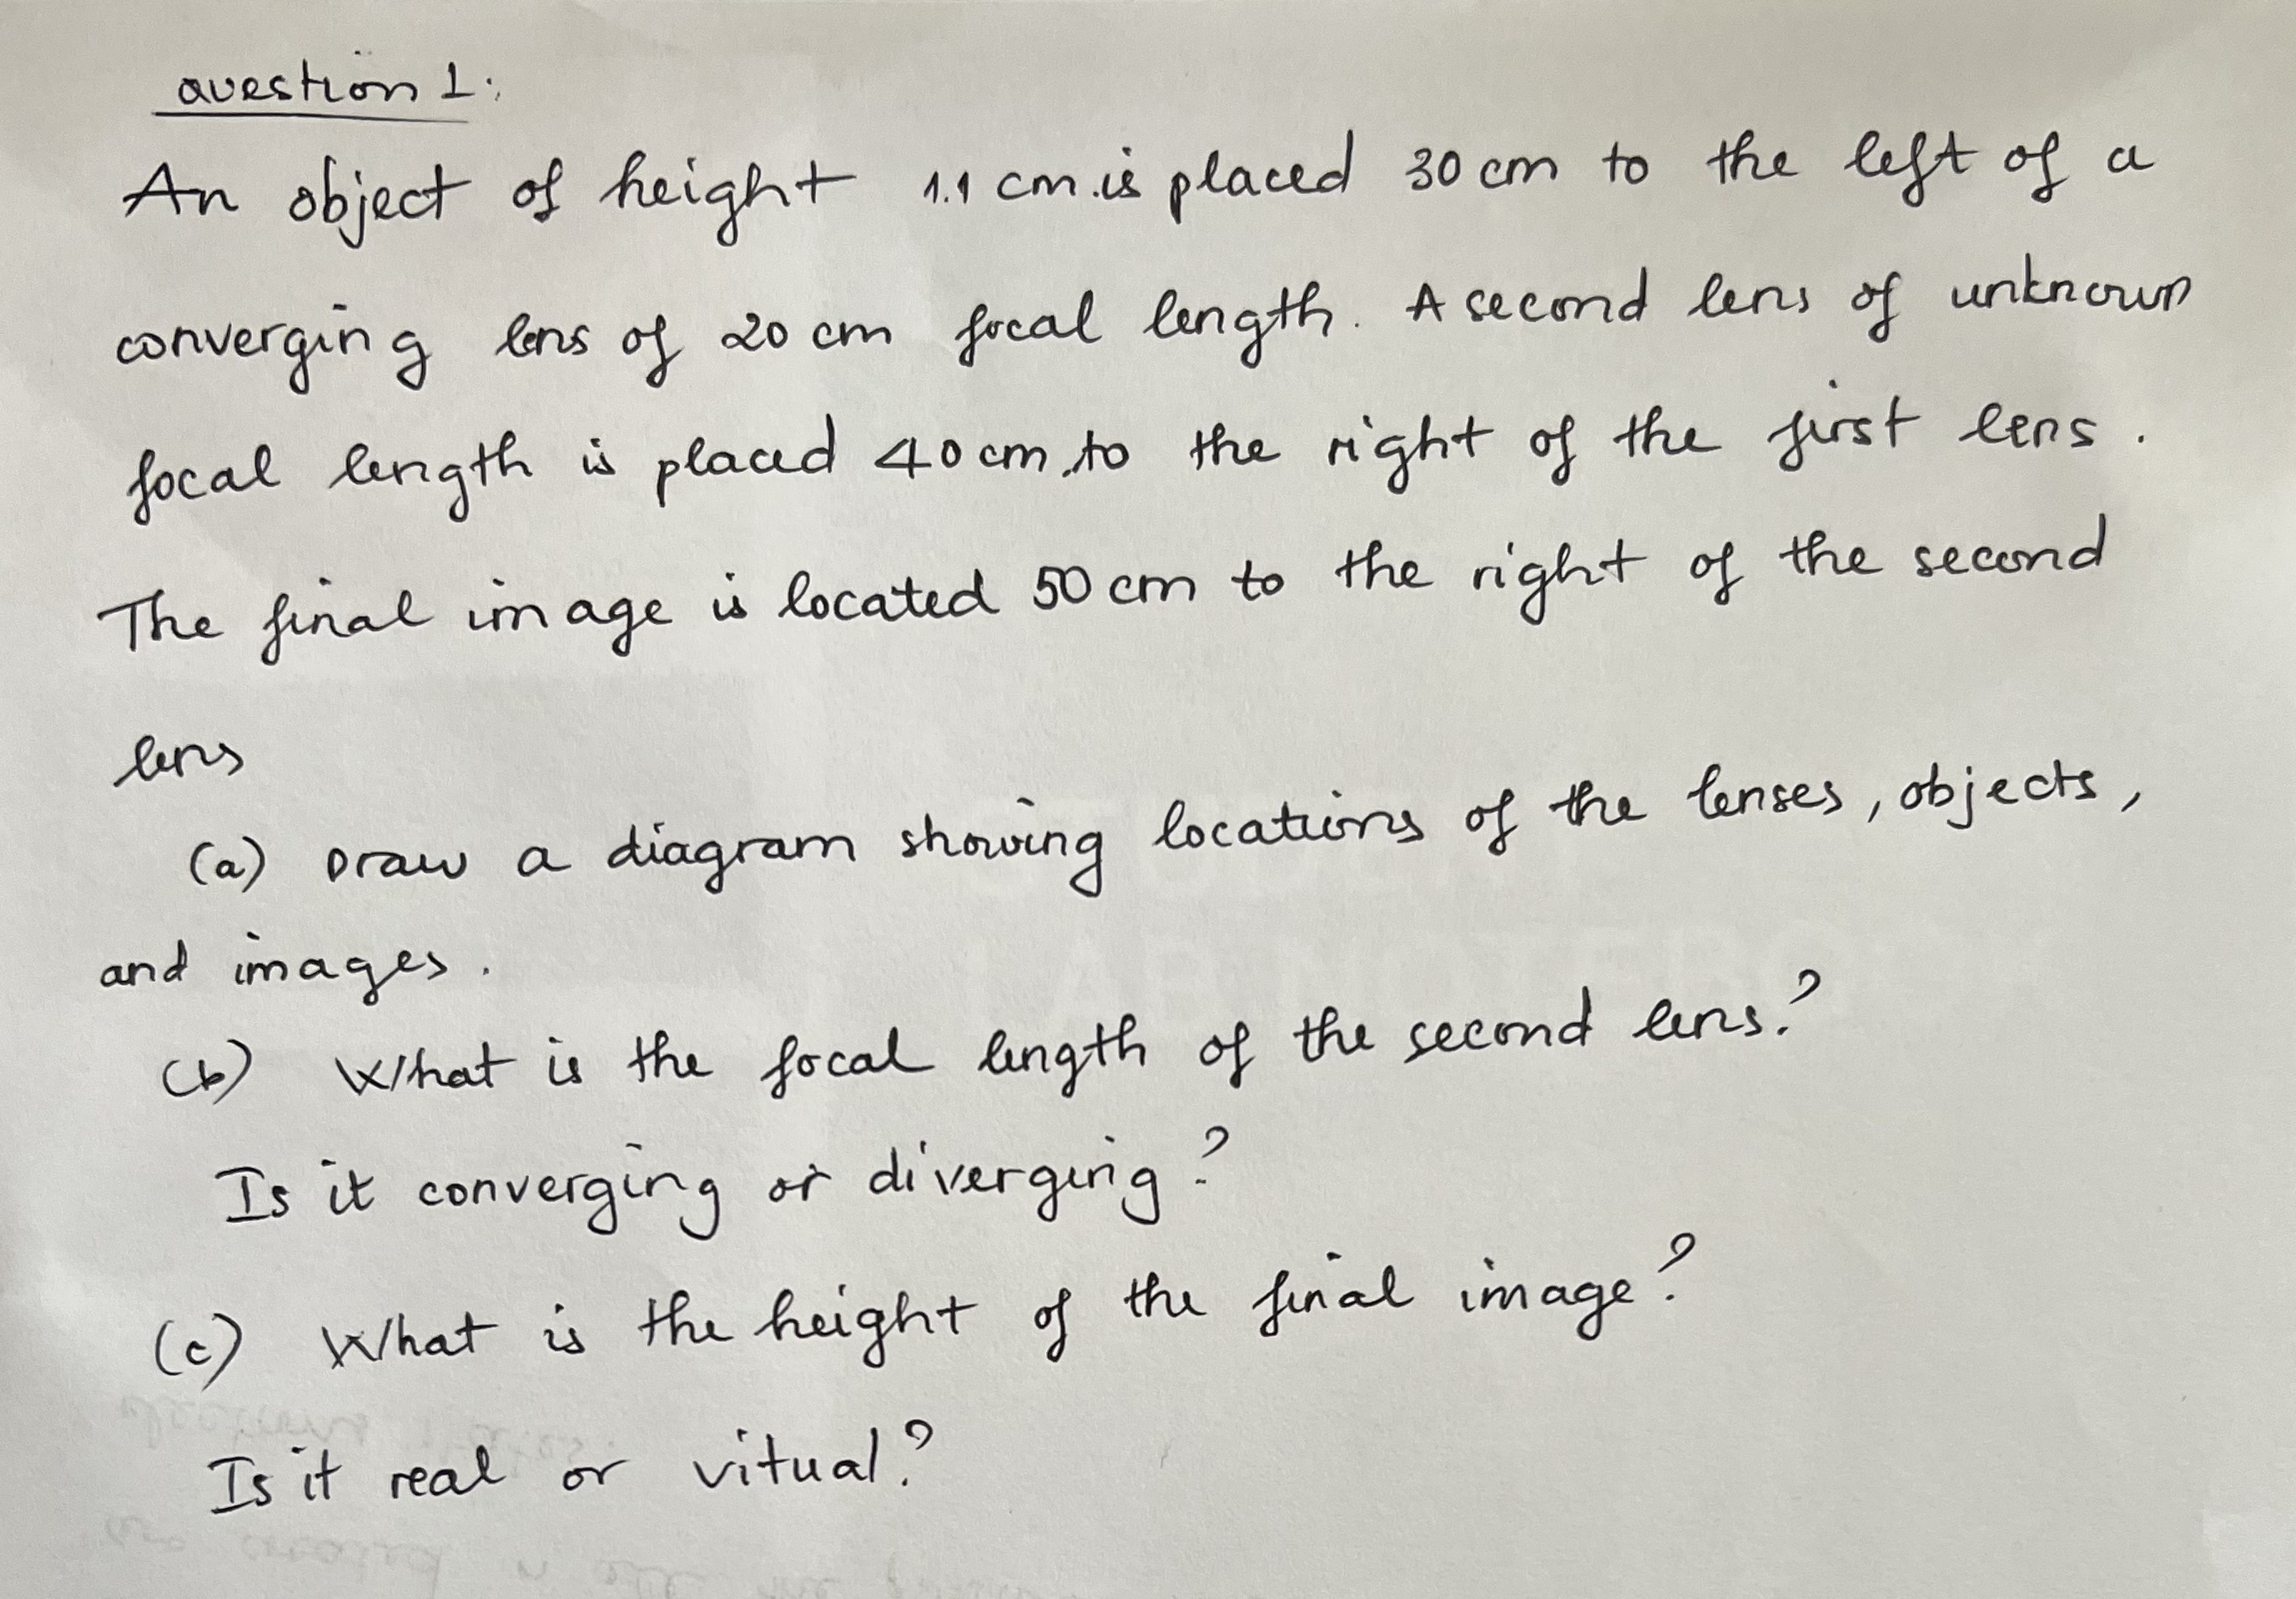 question 1:
An object of height 1.1 cm is placed 30 cm to the left of a
converging lens of 20 cm focal length. A second lens of unknown
focal length is placed 40 cm to the right of the first lens.
The final image is located 50 cm to the right of the second
lens
(a) Draw a diagram showing locations of the lenses, objects,
and images.
(b) What is the focal length of the second lens?
Is it converging or diverging?
(c) What is the height of the final image?
Is it real or vitual?